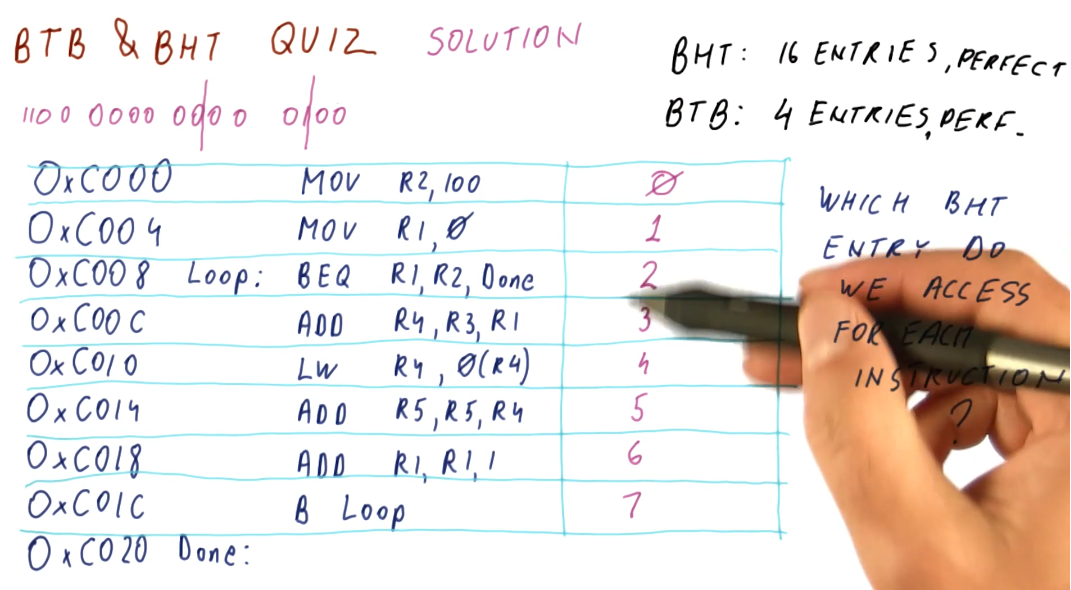 BTB & BHT QUIZ SOLUTION
1100 0000 0000 0100
BHT: 16 ENTRIES, PERFECT
BTB: 4 ENTRIES, PERF.
0xC000 MOV R2, 100 0
0xC004 MOV R1, 0 1
0xC008 Loop: BEQ R1, R2, Done 2
0xC00C ADD R4, R3, R1 3
0xC010 LW R4, 0(R4) 4
0xC014 ADD R5, R5, R4 5
0xC018 ADD R1, R1, 1 6
0xC01C B Loop 7
0xC020 Done:
WHICH BHT
ENTRY DO
WE ACCESS
FOR EACH
INSTRUCTION
?